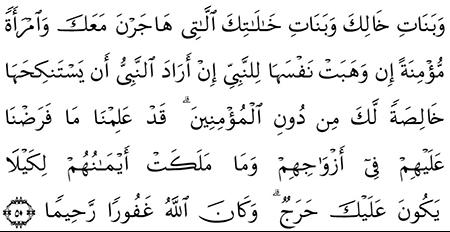 وَبَنَاتِ خَالِكَ وَبَنَاتِ خَٰلَٰتِكَ ٱلَّٰتِى هَاجَرْنَ مَعَكَ وَٱمْرَأَةً
مُّؤْمِنَةً إِن وَهَبَتْ نَفْسَهَا لِلنَّبِىِّ إِنْ أَرَادَ ٱلنَّبِىُّ أَن يَسْتَنكِحَهَا
خَالِصَةً لَّكَ مِن دُونِ ٱلْمُؤْمِنِينَ ۗ قَدْ عَلِمْنَا مَا فَرَضْنَا
عَلَيْهِمْ فِىٓ أَزْوَٰجِهِمْ وَمَا مَلَكَتْ أَيْمَٰنُهُمْ لِكَيْلَا
يَكُونَ عَلَيْكَ حَرَجٌ ۗ وَكَانَ ٱللَّهُ غَفُورًا رَّحِيمًا ۝٥٠